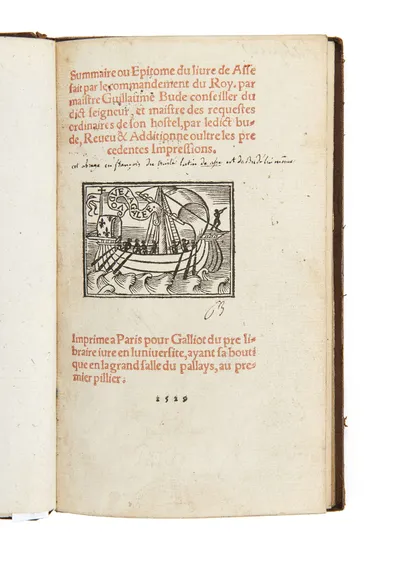 Summaire ou Epitome du liure de Asse
fait par le commandement du Roy, par
maistre Guillaume Bude conseiller du
dict seigneur, et maistre des requestes
ordinaires de son hostel, par ledict bu-
de, Reueu & Additionne oultre les pre
cedentes Impressions.
cet abrege en françois du latin de asse est de Budé lui même
VOGVE
GALEE
63
Imprime a Paris pour Galliot du pre li-
braire iure en luniuersite, ayant sa bouti
que en la grand salle du pallays, au pre-
mier pillier.
1529